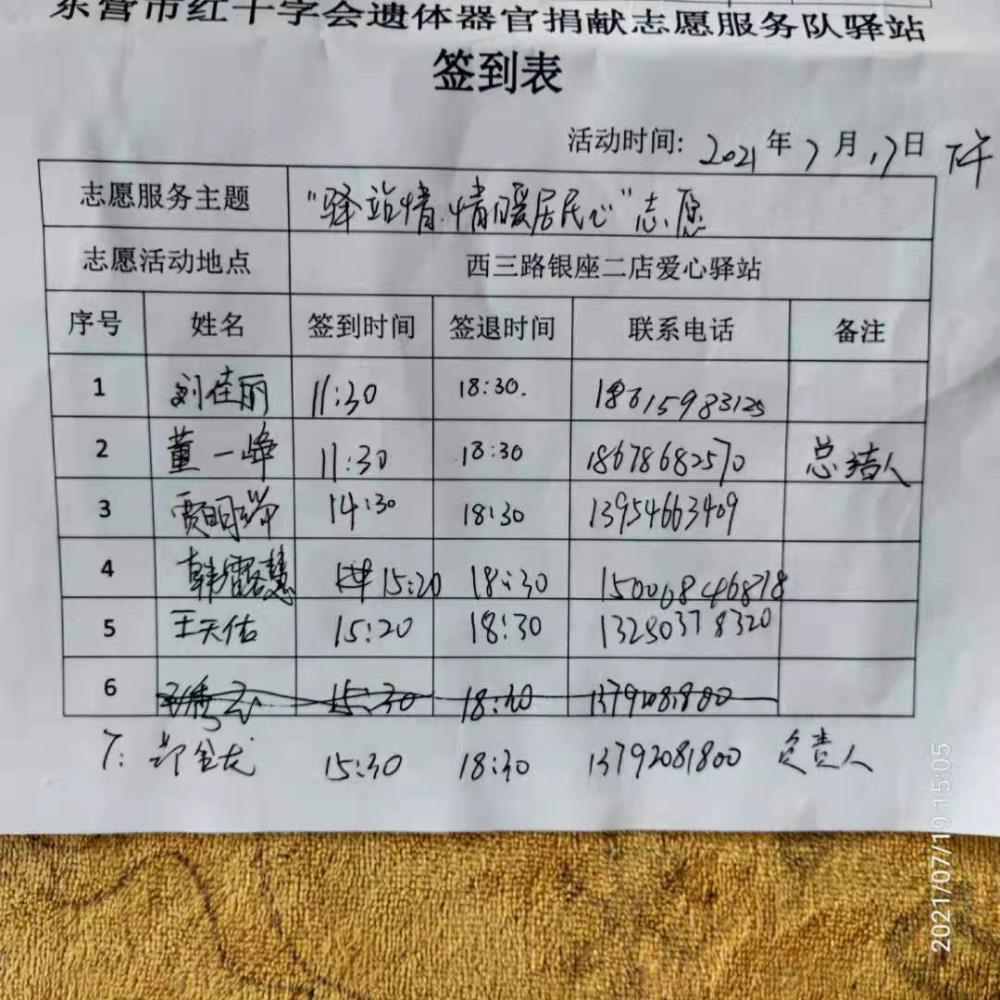 东营市红十字会遗体器官捐献志愿服务队驿站
签到表
活动时间: 2021年7月17日 下午
志愿服务主题 “驿站情.情暖居民心”志愿
志愿活动地点 西三路银座二店爱心驿站
序号 姓名 签到时间 签退时间 联系电话 备注
1 刘佳丽 11:30 18:30. 18615983125
2 董一峰 11:30 18:30 18678682570 总结人
3 贾明 14:30 18:30 13954663409
4 韩露慧 15:20 18:30 15006846818
5 王天佑 15:20 18:30 13250378320
6 15:30 18:30 13792081800
7: 郑金龙 15:30 18:30 13792081800 负责人
2021/07/19 15:05